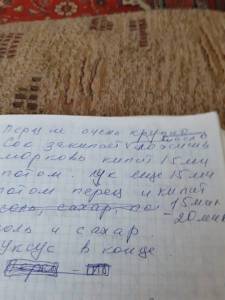 Перец не очень крупно
Сок закипает ложишь
морковь кипит 15 мин
потом лук еще 15 мин
потом перец и кипит
соль, сахар, по 15 мин
- 20 мин
соль и сахар
Уксус в конце